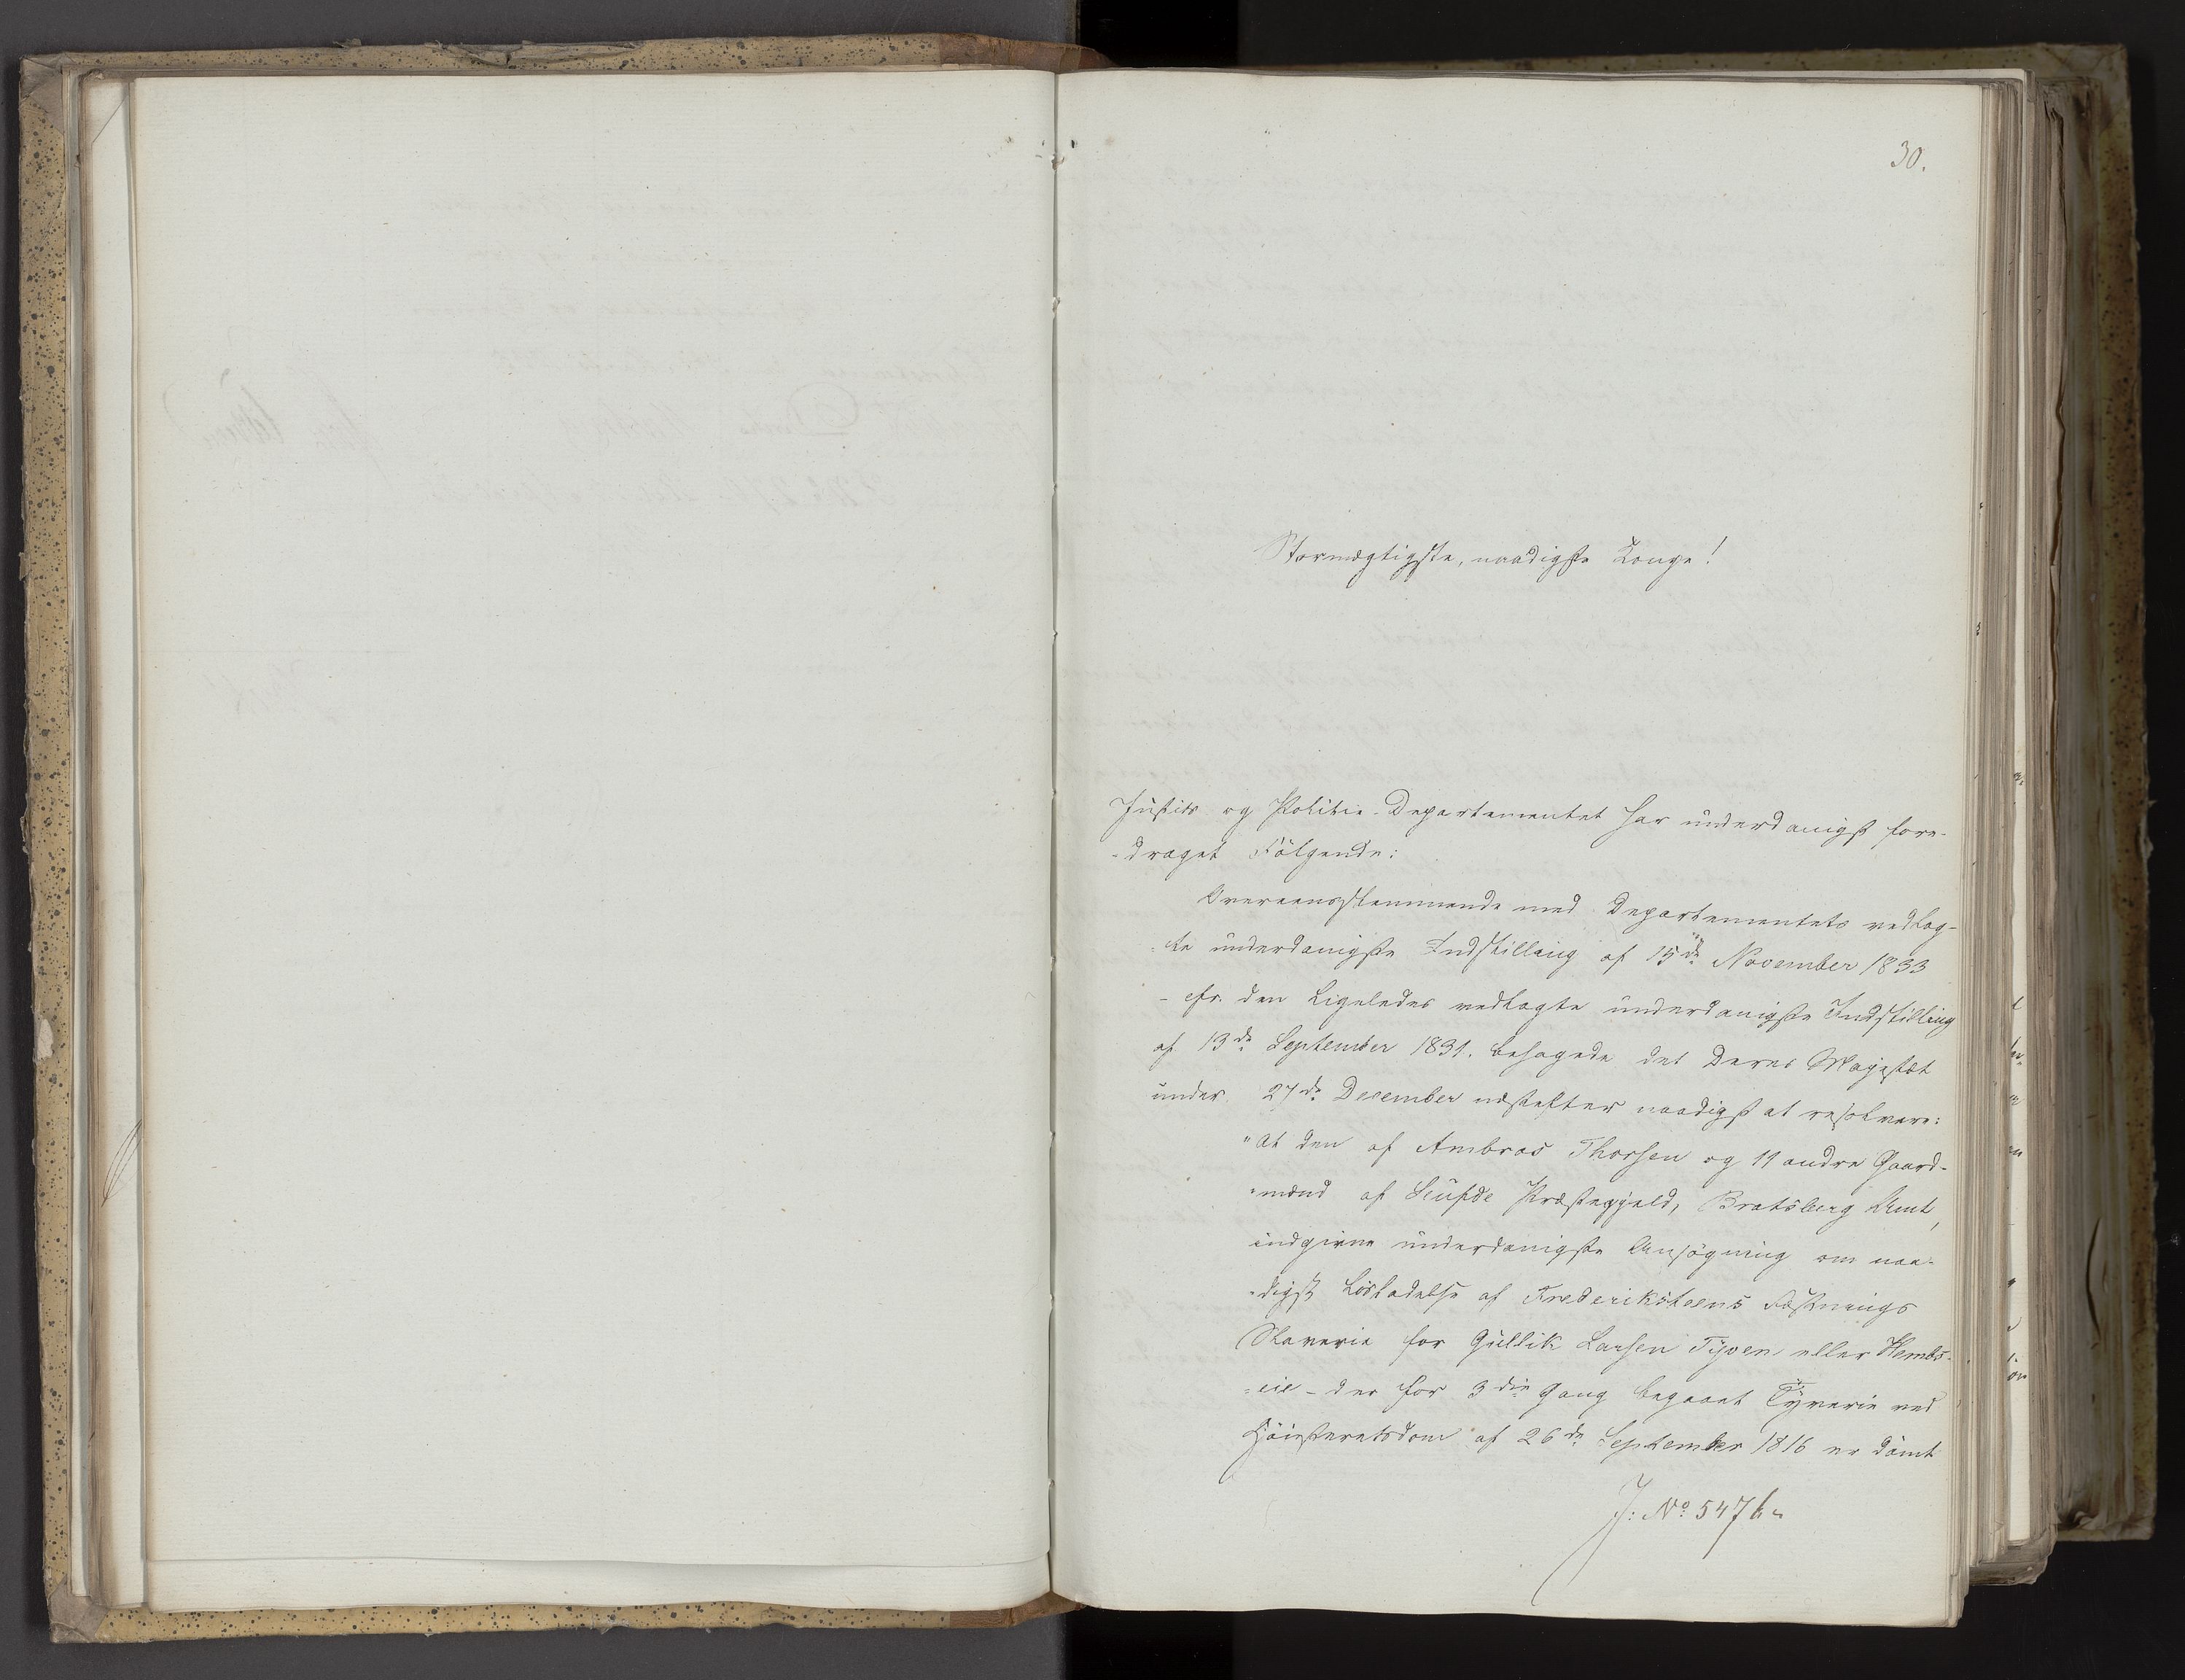 30.
Stormægtigste, naadigste Konge!
Justits og Politie-Departementet har underdanigst fore-
-draget Følgende:
Overeensstemmende med Departementets vedlag-
-te underdanigste Indstilling af 15de November 1833
- cfr. den ligeledes vedlagte underdanigste Indstilling
af 13de September 1831. behagede det Deres Majestæt
under 27de December næstefter naadigst at resolvere:
"At den af Ambros Thorsen og 11 andre Gaard-
-mænd af Præstegjeld, Bratsberg Amt,
indgivne underdanigste Ansøgning om naa-
-digst Løsladelse af Frederiksteens Fæstnings
Slaverie for Gullik Larsen Tyven eller Hembs-
-eie - der for 3die Gang begaaet Tyverie ved
Høiesteretsdom af 26de September 1816 er dømt
J: No 547